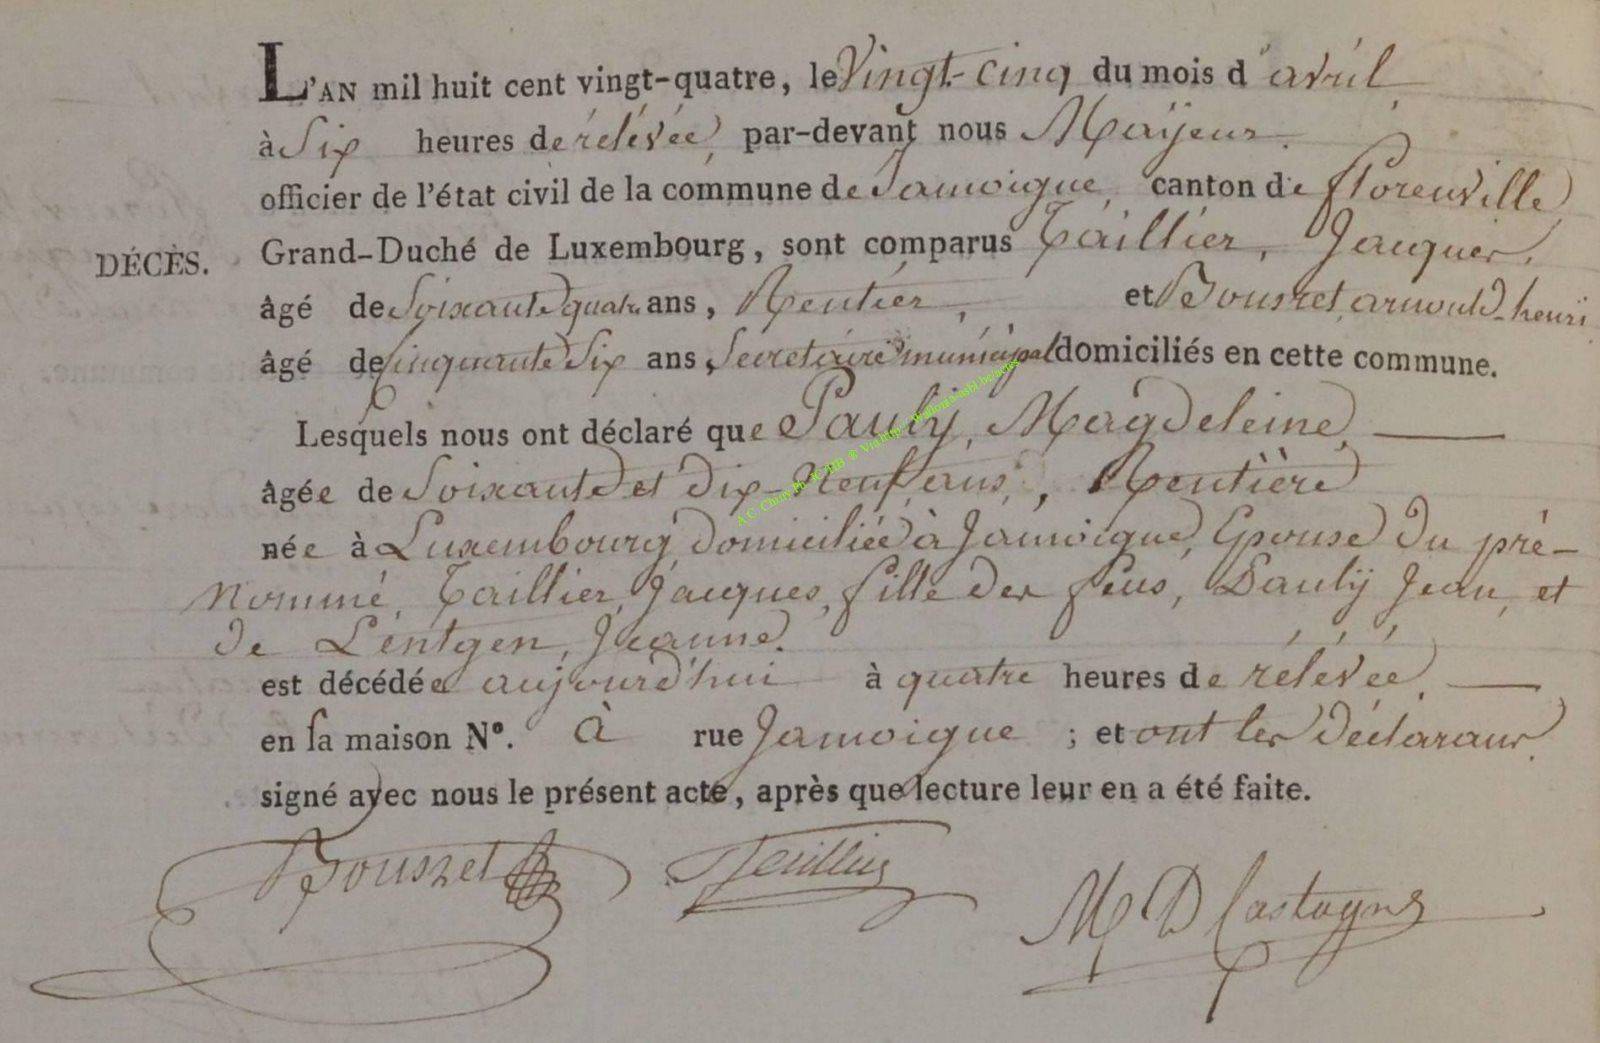 L'AN mil huit cent vingt-quatre, le Vingt-cinq du mois d'avril
à Six heures de rélévée, par-devant nous Maÿeur.
officier de l'état civil de la commune de Jamoigne, canton de florenville,
DÉCÈS. Grand-Duché de Luxembourg, sont comparus Taillier, Jacques,
âgé de Soixante quatre ans, Rentier, et Bousret, arnould-henri
âgé de Cinquante Six ans, Secretaire municipal domiciliés en cette commune.
Lesquels nous ont déclaré que Paulÿ, Magdeleine,
âgée de Soixante et dix-Neuf ans, Rentière
née à Luxembourg domiciliée à Jamoigne, Epouse du pré-
nommé, Taillier, Jacques, fille des feus, Paulÿ Jean, et
de Lentgen, Jeanne.
est décédée aujourd'hui à quatre heures de rélévée.
en sa maison N°. à rue Jamoigne ; et ont les déclarans
signé avec nous le présent acte, après que lecture leur en a été faite.
Bousret Teillier
M D Castagne
A.C. Chiny Ph. ® Via http://www.luxroots-asbl.be/actes